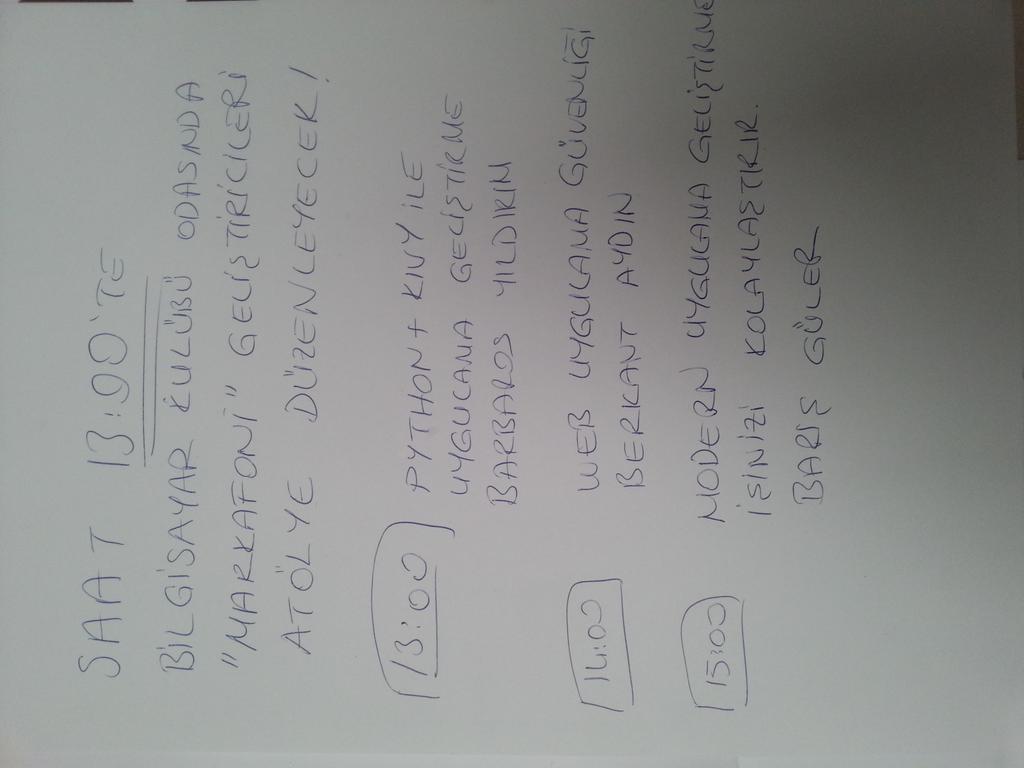 SAAT 13:00'TE
BİLGİSAYAR KULÜBÜ ODASINDA
"MARKAFONİ" GELİŞTİRİCİLERİ
ATÖLYE DÜZENLEYECEK!
13:00 PYTHON + KIVY İLE
UYGULAMA GELİŞTİRME
BARBAROS YILDIRIM
14:00 WEB UYGULAMA GÜVENLİĞİ
BERKANT AYDIN
15:00 MODERN UYGULAMA GELİŞTİRME
İŞİNİZİ KOLAYLAŞTIRIR.
BARIŞ GÜLER